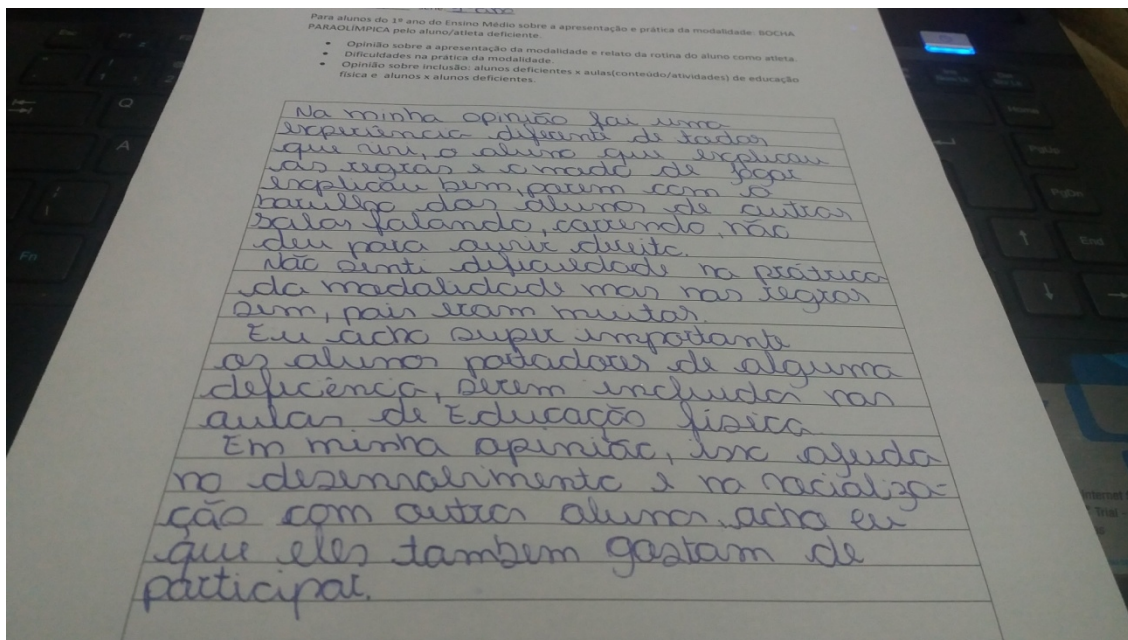 Para alunos do 1º ano do Ensino Médio sobre a apresentação e prática da modalidade: BOCHA
PARAOLÍMPICA pelo aluno/atleta deficiente.
• Opinião sobre a apresentação da modalidade e relato da rotina do aluno como atleta.
• Dificuldades na prática da modalidade.
• Opinião sobre inclusão: alunos deficientes x aulas(conteúdo/atividades) de educação
física e alunos x alunos deficientes.
Na minha opinião foi uma
experiência diferente de todas
que vivi, o aluno que explicou
as regras e o modo de jogar
explicou bem, porem com o
barulho dos alunos de outras
salas falando, correndo, não
deu para ouvir direito.
Não senti dificuldade na prática
da modalidade mas nas regras
sim, pois eram muitas.
Eu acho super importante
os alunos portadores de alguma
deficiência, serem incluidos nas
aulas de Educação física
Em minha opinião, isso ajuda
no desenvolvimento e na socializa-
ção com outros alunos, acho eu
que eles tambem gostam de
participar.
Fn
Q
A
Home
PgUp
PgDn
End